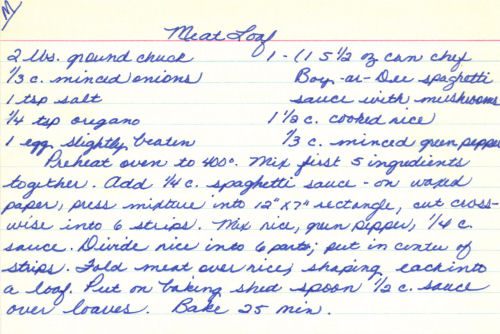 M
Meat Loaf
2 lbs. ground chuck
1/3 c. minced onions
1 tsp salt
1/4 tsp oregano
1 egg slightly beaten
1 - (1 5 1/2 oz can chef
Boy-ar-Dee spaghetti
sauce with mushrooms
1 1/2 c. cooked rice
1/3 c. minced green pepper
Preheat oven to 400°. Mix first 5 ingredients
together. Add 1/4 c. spaghetti sauce - on waxed
paper, press mixture into 12" x 7" rectangle, cut cross-
wise into 6 strips. Mix rice, green pepper, 1/4 c.
sauce. Divide rice into 6 parts; put in center of
strips. Fold meat over rice, shaping each into
a loaf. Put on baking sheet spoon 1/2 c. sauce
over loaves. Bake 25 min.